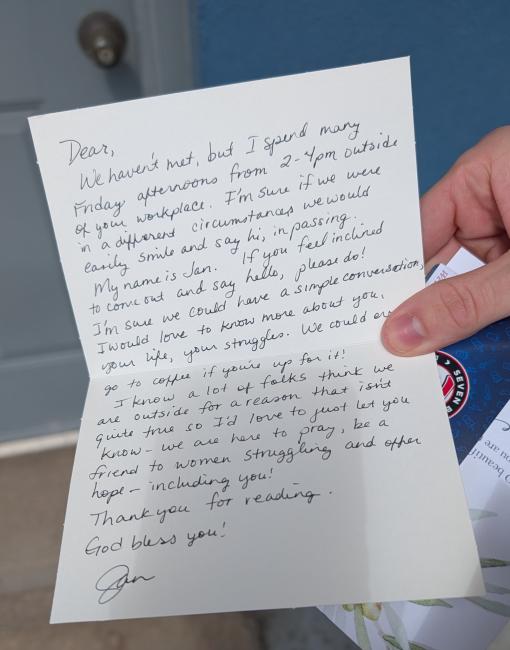 Dear,
We haven't met, but I spend many
Friday afternoons from 2-4pm outside
of your workplace. I'm sure if we were
in a different circumstances we would
easily smile and say hi, in passing.
My name is Jan. If you feel inclined
to come out and say hello, please do!
I'm sure we could have a simple conversation,
I would love to know more about you,
your life, your struggles. We could
go to coffee if you're up for it!
I know a lot of folks think we
are outside for a reason that isn't
quite true so I'd love to just let you
know - we are here to pray, be a
friend to women struggling and offer
hope - including you!
Thank you for reading.
God bless you!
Jan
SEVEN
you are